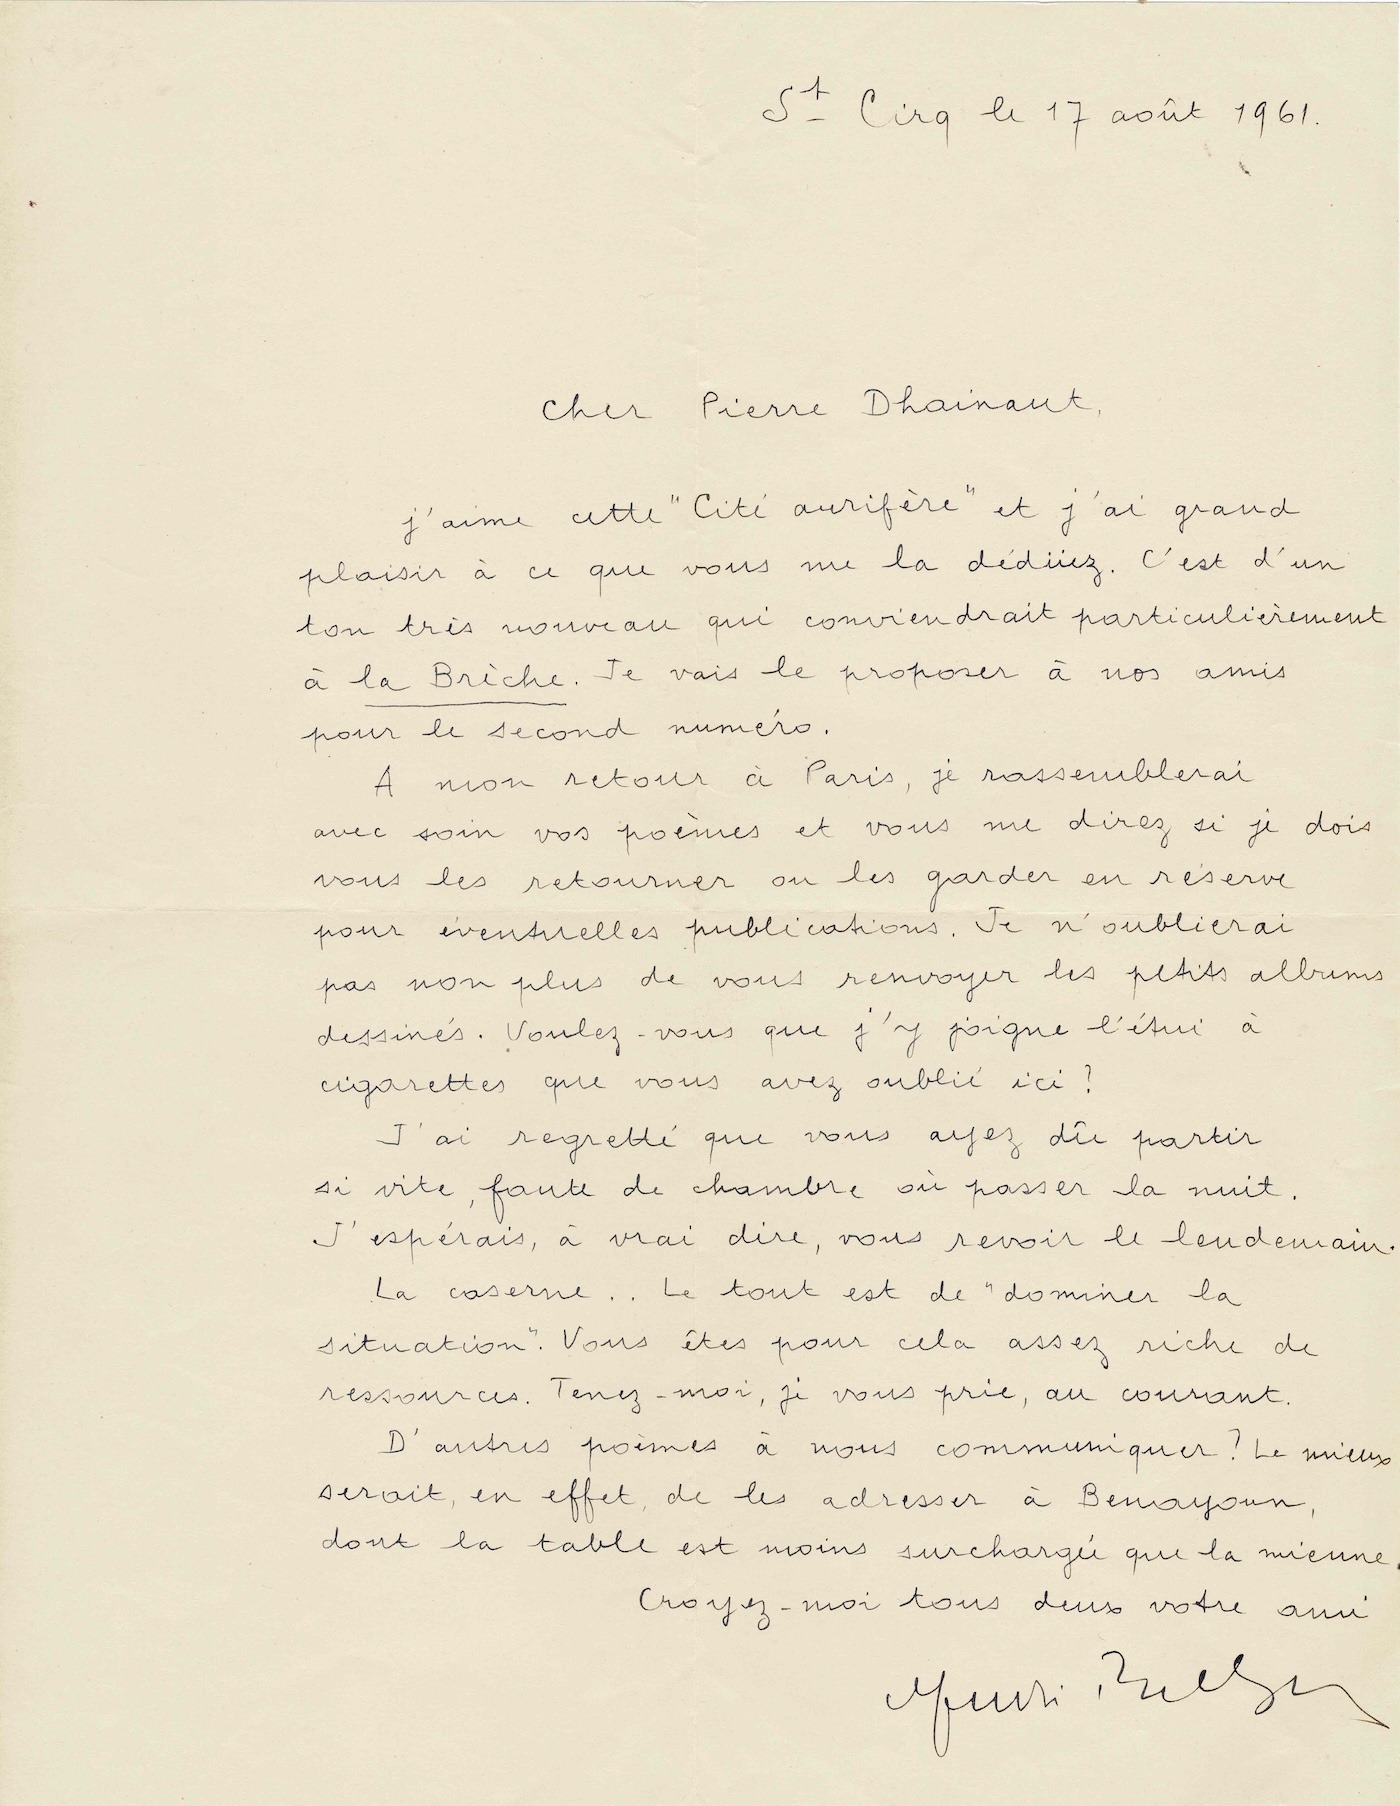 St Cirq le 17 août 1961.
Cher Pierre Dhainaut,
j'aime cette "Cité aurifère" et j'ai grand
plaisir à ce que vous me la dédiiez. C'est d'un
ton très nouveau qui conviendrait particulièrement
à la Brèche. Je vais le proposer à nos amis
pour le second numéro.
A mon retour à Paris, je rassemblerai
avec soin vos poèmes et vous me direz si je dois
vous les retourner ou les garder en réserve
pour éventuelles publications. Je n'oublierai
pas non plus de vous renvoyer les petits albums
dessinés. Voulez-vous que j'y joigne l'étui à
cigarettes que vous avez oublié ici?
J'ai regretté que vous ayez dû partir
si vite, faute de chambre où passer la nuit.
J'espérais, à vrai dire, vous revoir le lendemain.
La caserne.. Le tout est de "dominer la
situation". Vous êtes pour cela assez riche de
ressources. Tenez-moi, je vous prie, au courant.
D'autres poèmes à nous communiquer? Le mieux
serait, en effet, de les adresser à Benayoun,
dont la table est moins surchargée que la mienne.
Croyez-moi tous deux votre ami